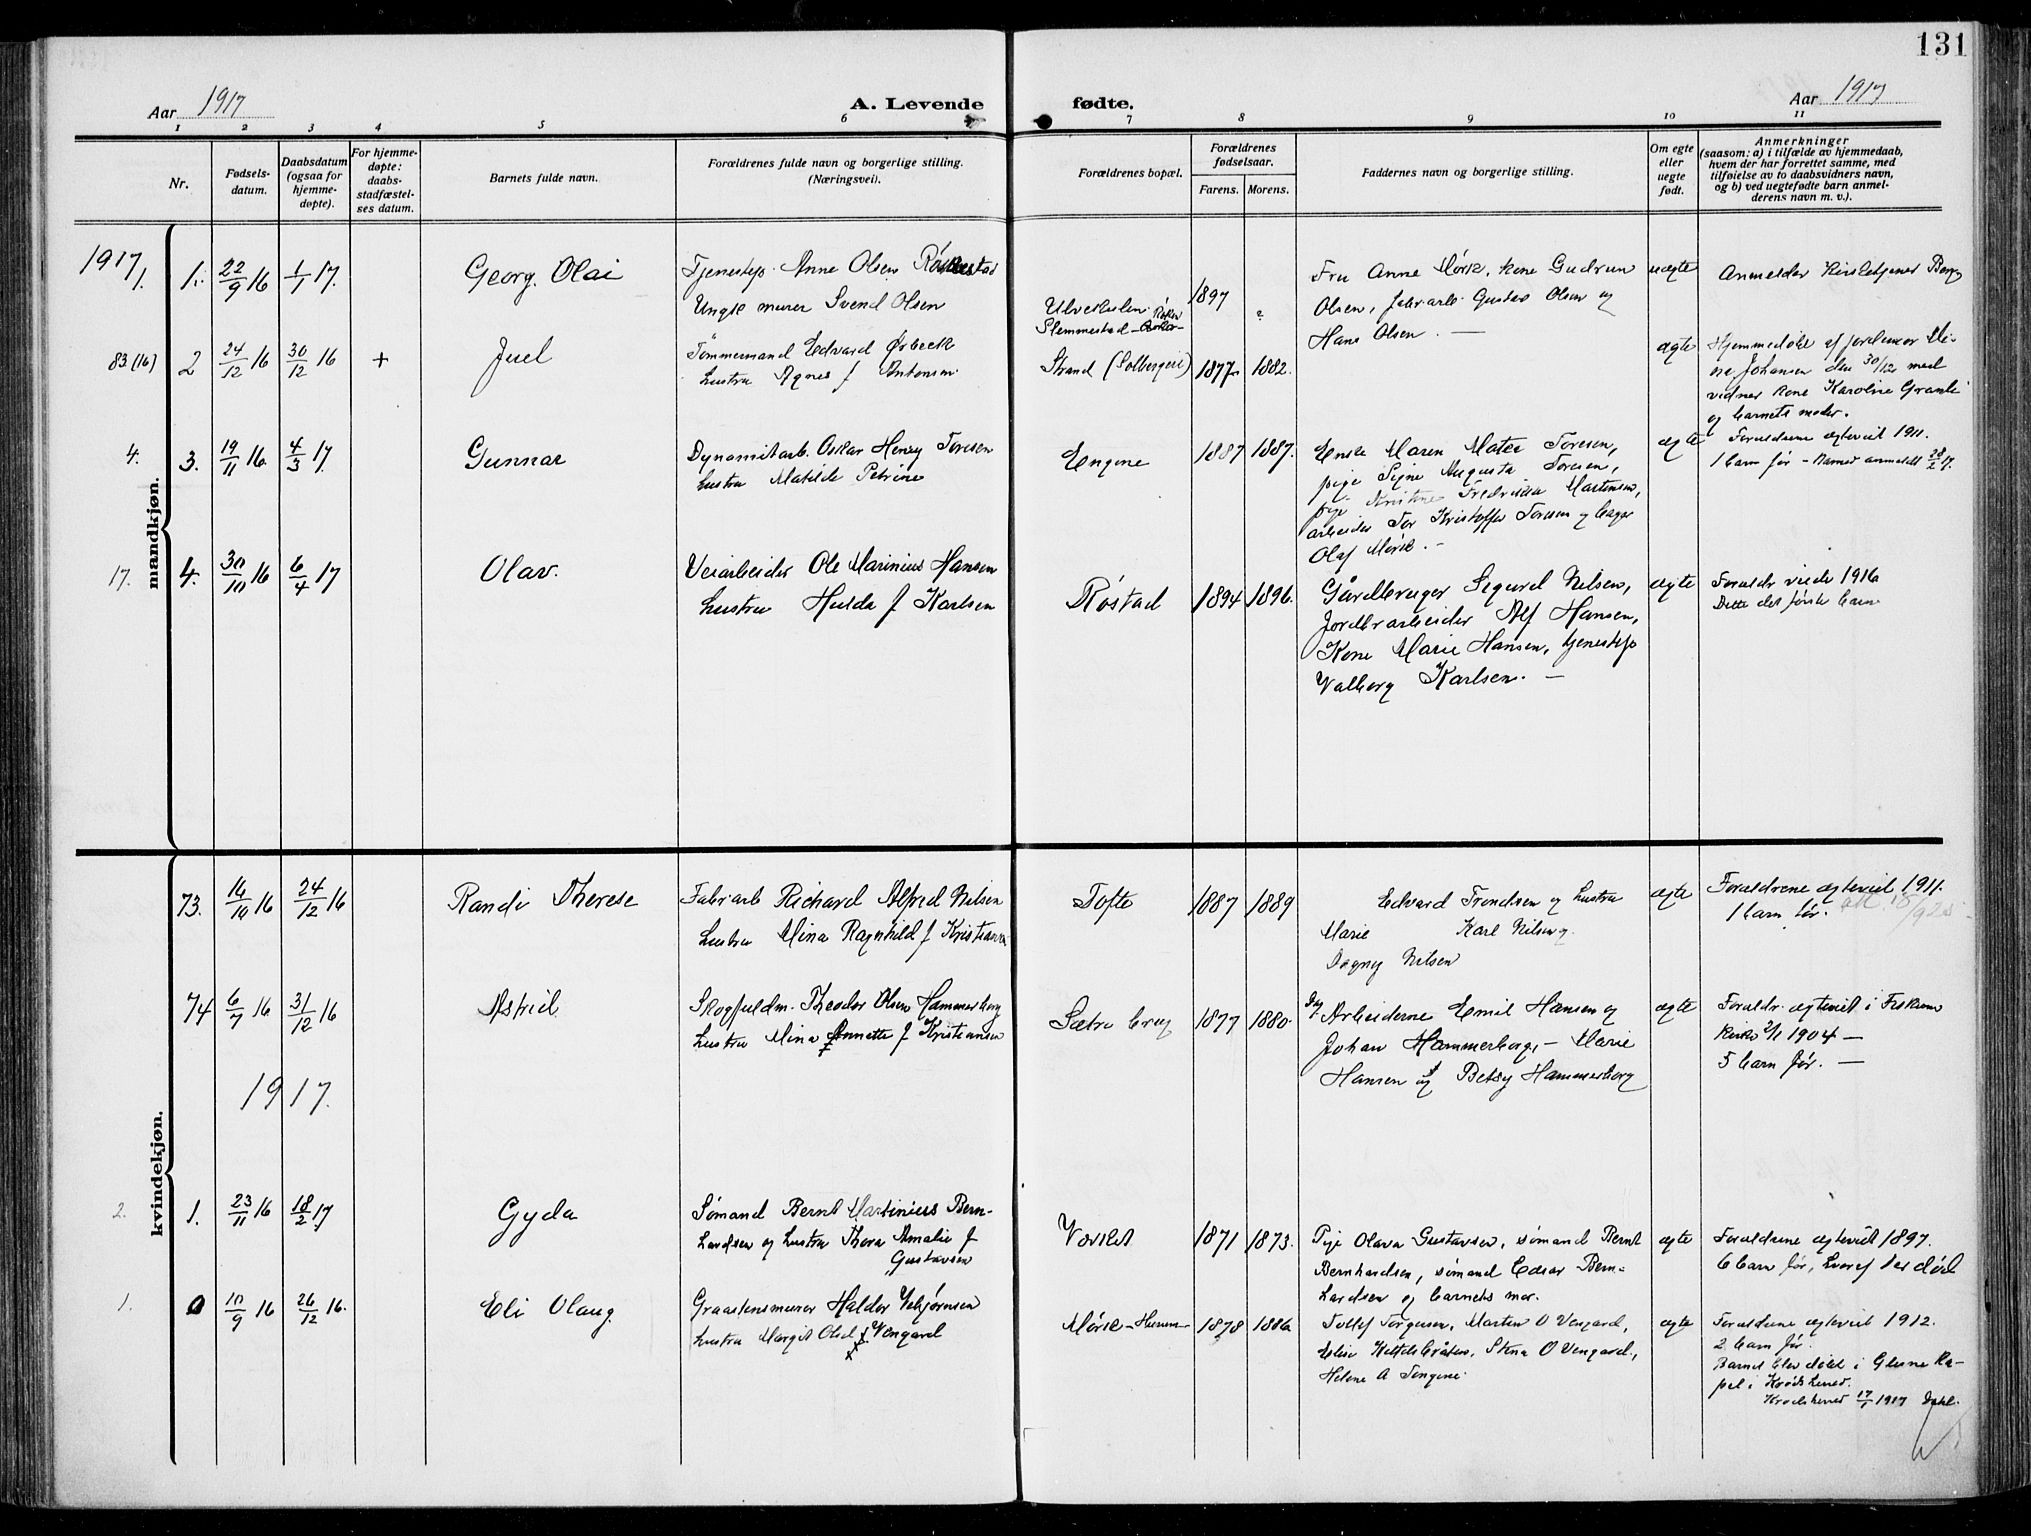 131
Aar 1917
A. Levende
fødte.
Aar 1917
1 2 3 4 5 6 7 8 9 10 11
Nr.
Fødsels-
datum.
Daabsdatum
(ogsaa for
hjemme-
døpte).
For hjemme-
døpte:
daabs-
stadfæstel-
ses datum.
Barnets fulde navn.
Forældrenes fulde navn og borgerlige stilling.
(Næringsvei).
Forældrenes bopæl.
Forældrenes
fødselsaar.
Farens. Morens.
Faddernes navn og borgerlige stilling.
Om egte
eller
uegte
født.
Anmerkninger
(saasom: a) i tilfælde av hjemmedaab,
hvem der har forrettet samme, med
tilføielse av to daabsvidners navn,
og b) ved uegtefødte barn anmel-
derens navn m. v.).
mandkjøn.
1917
1. 1. 22/9 16 1/1 17. Georg. Olai
Tjenestepi. Anne Olsen
Ungk murer Svend Olsen
Slemmestad
1897
Fru Anne Mørk, kone Gudrun
Olsen, fabr.arb. Gustav Olsen og
Hans Olsen. —
uægte
Anmelder Kirketjener Berg
83 (16) 2 24/12 16 30/12 16 + Juel
Tømmermand Edvard Ørbeck
hustru Agnes f Antonsen
Strand (Solbergeie) 1877 1882.
ægte
Hjemmedøbt af jordemor
Johansen den 30/12 med
vidner kone Karoline Granli
og barnets moder.
4. 3. 19/11 16 4/3 17. Gunnar
Dynamitarb. Oskar Henry Toresen
hustru Matilde Petrine
Engene 1887 1887.
Enke Maren Mater Toresen,
pige Signe Augusta Toresen,
pige Kristine Fredrikka Martinsen,
arbeider Tor Kristoffer Toresen og bager
Olaf Mørk. —
ægte
Forældrene ægteviet 1911.
1 barn før – Navned anmeldt 28/2 17.
17. 4. 30/10 16 6/4 17 Olav.
Veiarbeider Ole Marinius Hansen
hustru Hulda f Karlsen
Røstad 1894 1896.
Gårdbruger Sigurd Nilsen,
Jordbrarbeider Alf Hansen,
Kone Marie Hansen, tjenestepi
Valborg Karlsen. —
ægte
Forældr viede 1916
Dette det første barn
kvindekjøn.
73. 16/10 16 24/12 16 Randi Therese
Fabr arb Richard Alfred Nilsen
hustru Mina Ragnhild f Kristiansen
Tofte 1887 1889
Edvard Trondsen og hustru
Marie Karl Nilsen og
Dagny Nilsen
ægte
Forældrene ægteviet 1911.
1 barn før.
74 6/7 16 31/12 16 Astrid
Skogfuldm. Theodor Olsen Hammerborg
hustru Mina Annette f Kristiansen
Sætre brug 1877 1880.
Arbeiderne Emil Hansen og
Johan Hammerborg – Marie
Hansen og Betsy Hammerborg
ægte
Forældr. ægteviet i Fiskum
Kirke 2/1 1904 —
5 barn før. —
1917.
2. 1. 23/11 16 18/2 17 Gyda
Sømand Bernt Martinius Bern-
hardsen og hustru Thora Amalie f
Gustavsen
1871 1873.
Pige Olava Gustavsen, sømand Bernt
Bernhardsen, sømand Edvar Bern-
hardsen og barnets mor.
ægte
Forældrene ægteviet 1897.
6 barn før, hvoraf 1 er død
1. 0 10/9 16 26/12 16. Eli Olaug.
Graastensmurer Haldor Vebjørnsen
hustru Margit Olsd Vengard
Mørk – Hurum 1878 1886
Tollef Torgersen, Morten O Vengard,
Stena O Vengard,
Helene A Tengene.
ægte
Forældrene ægteviet 1912.
2 barn før.
Barnet blev døbt i Glesne Ka-
pel i Krødsherred.
Krødsherred 17/1 1917